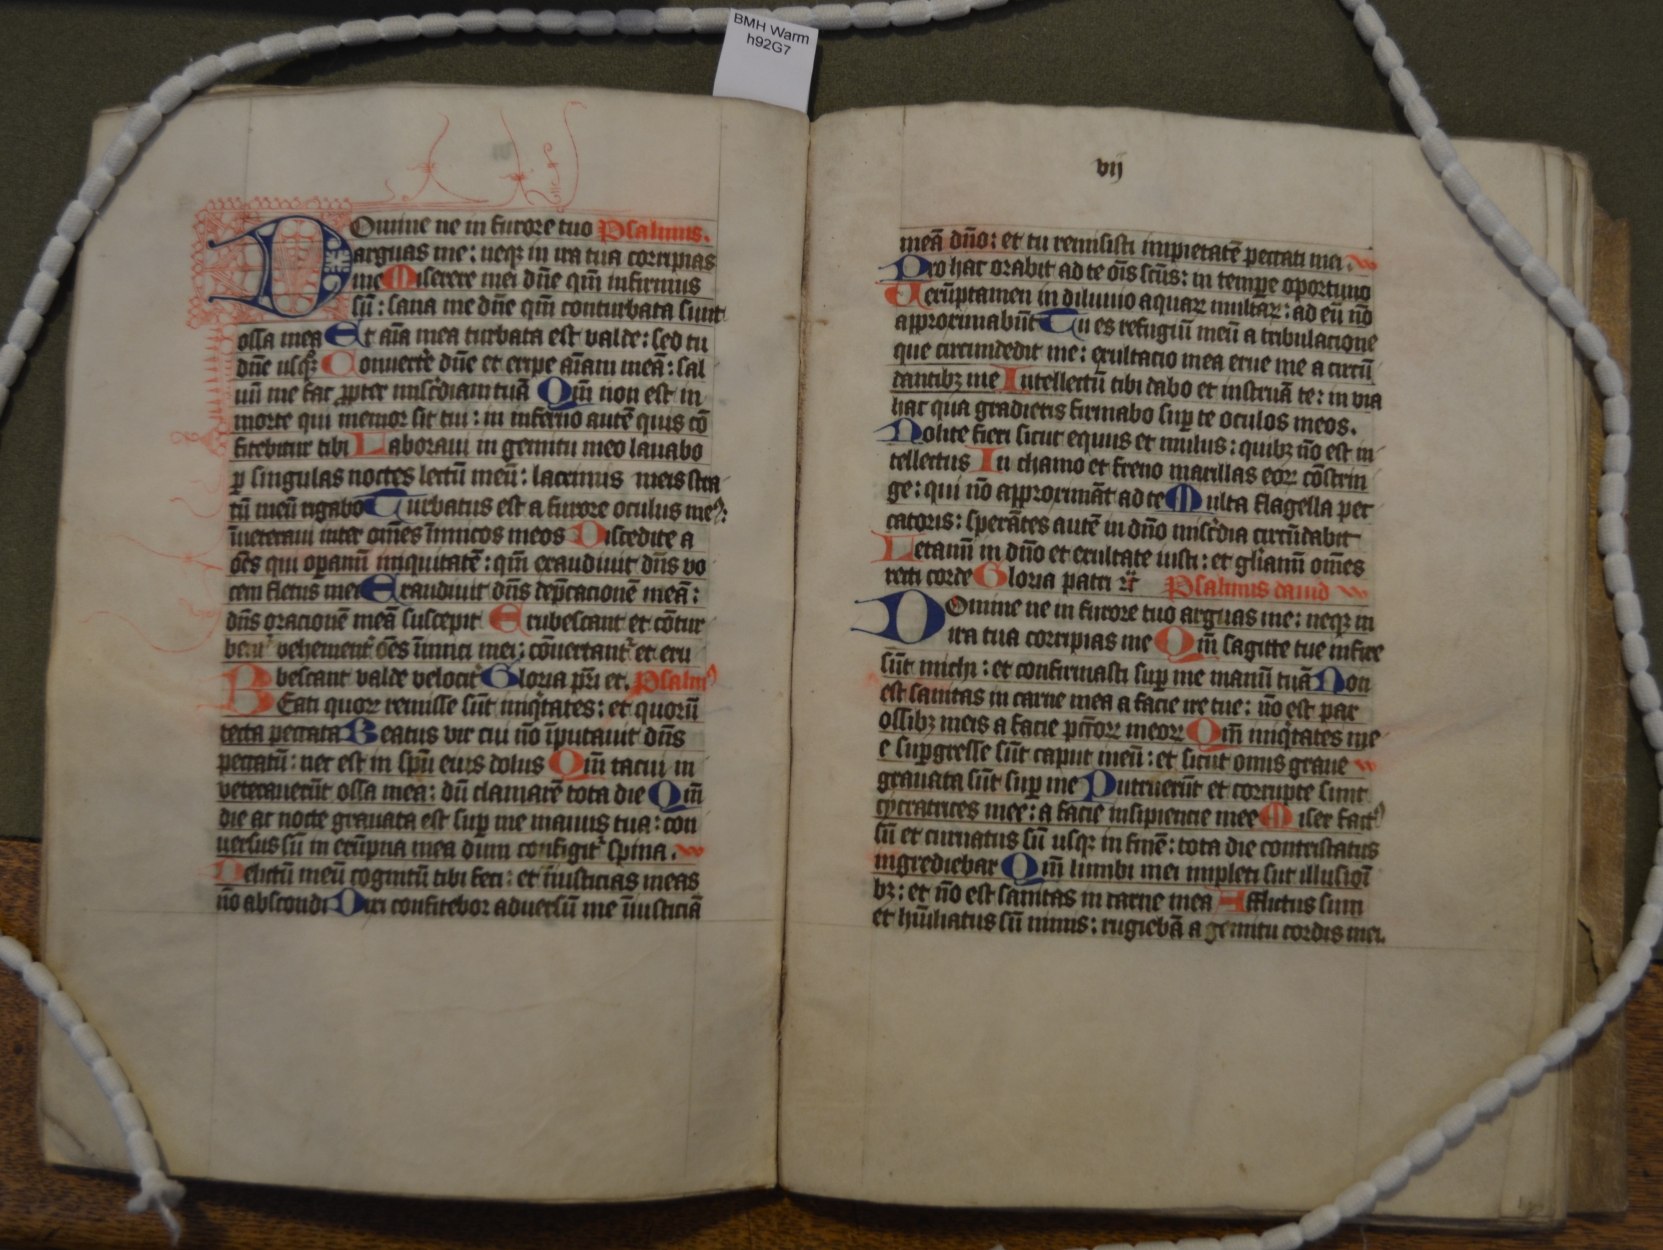 BMH Warm
h92G7
Domine ne in furore tuo Psalmus.
arguas me: neqꝫ in ira tua corripias
me Miserere mei dn̄e qm̄ infirmus
sū: sana me dn̄e qm̄ conturbata sunt
ossa mea Et aīa mea turbata est valde: sed tu
dn̄e usqꝫ Convertē dn̄e et eripe aīam meā: sal
uū me fac ꝓpter misc̄diam tuā Qm̄ non est in
morte qui memor sit tui: in inferno autē quis cō
fitebitur tibi Laboravi in gemitu meo lavabo
ꝑ singulas noctes lectū meū: lacrimis meis stra
tū meū rigabo Turbatus est a furore oculus meꝰ:
īveteravi inter om̄es īnnicos meos Discedite a
ōēs qui oꝑanī iniquitatē: qm̄ exaudivit dn̄s vo
cem fletus mei Exaudivit dn̄s dep̄cationē meā:
dn̄s orationē meā suscepit Erubescant et cōtur
benᷣ vehementᷣ ōēs īnnici mei: cōvertantᷣ et eru
bescant valde velocitᷣ Gloria pr̄i et. Psalmꝰ
BEati quoꝝ remisse sūt iniqͥtates: et quorū
tecta peccata Beatus vir cui nō īputavit dn̄s
peccatū: nec est in spū eius dolus Qm̄ tacui in
veteraverūt ossa mea: dū clamarē tota die Qm̄
die ac nocte gravata est suꝑ me manus tua: con
versus sū in erūpna mea dum configitᷣ spina.
Delictū meū cognitū tibi feci: et īiusticias meas
nō abscondi Dixi confitebor adversū me īiusticiā
vij
meā dn̄o: et tu remisisti impietatē peccati mei.
Pro hac orabit ad te ōīs sc̄us: in tempe oportuno
Verūptamen in diluvio aquaꝝ multaꝝ: ad eū nō
approximabūt Tu es refugiū meū a tribulacione
que circumdedit me: exultacio mea erue me a circū
dantibꝫ me Intellectū tibi dabo et instruā te: in via
hac qua gradieris firmabo suꝑ te oculos meos.
Nolite fieri sicut equus et mulus: quibꝫ nō est in
tellectus In chamo et freno maxillas eoꝝ cōstrin
ge: qui nō approximāt ad te Multa flagella pec
catoris: sperātes autē in dn̄o misc̄dia circūdabit
Letamī in dn̄o et exultate iusti: et gl̄iamī om̄es
recti corde Gloria patri ꝛc̄ Psalmus david
DOmine ne in furore tuo arguas me: neqꝫ in
ira tua corripias me Qm̄ sagitte tue infixe
sūt michi: et confirmasti suꝑ me manū tuā Non
est sanitas in carne mea a facie ire tue: nō est pax
ossibꝫ meis a facie pcc̄oꝝ meoꝝ Qm̄ iniqͥtates me
e suꝑgresse sūt caput meū: et sicut onus grave
gravata sūt suꝑ me Putruerūt et corrupte sunt
cycatrices mee: a facie insipiencie mee Miser factꝰ
sū et curvatus sū usqꝫ in finē: tota die contristatus
ingrediebar Qm̄ lumbi mei impleti sūt illusioī
bꝫ: et nō est sanitas in carne mea Afflictus sum
et hūiliatus sū nimis: rugiebā a gemitu cordis mei.